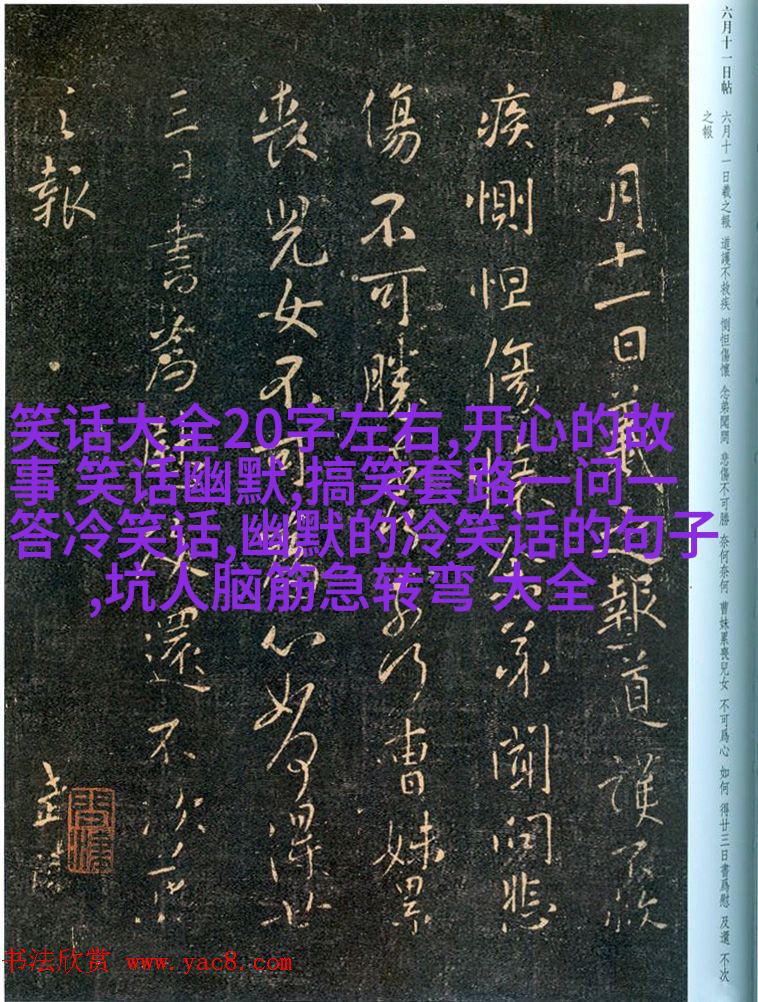 六月十一日帖 六月十一日羲之報 道護不救疾 惻怛傷懷 念弟聞問 悲傷不可勝 奈何奈何 曹妹累喪兒女 不可爲心 如何 得廿三日書爲慰 及還 不次
之報
六月十一日羲之報道護不救
疾惻怛傷懷念弟聞問悲
傷不可勝奈何奈何曹妹累
喪兒女不可為心如何得廿
三日書為慰及還不次羲
之報
笑话大全20字左右,开心的故
事 笑话幽默,搞笑套路一问一
答冷笑话,幽默的冷笑话的句子
,坑人脑筋急转弯 大全
书法欣赏 www.yac8.com